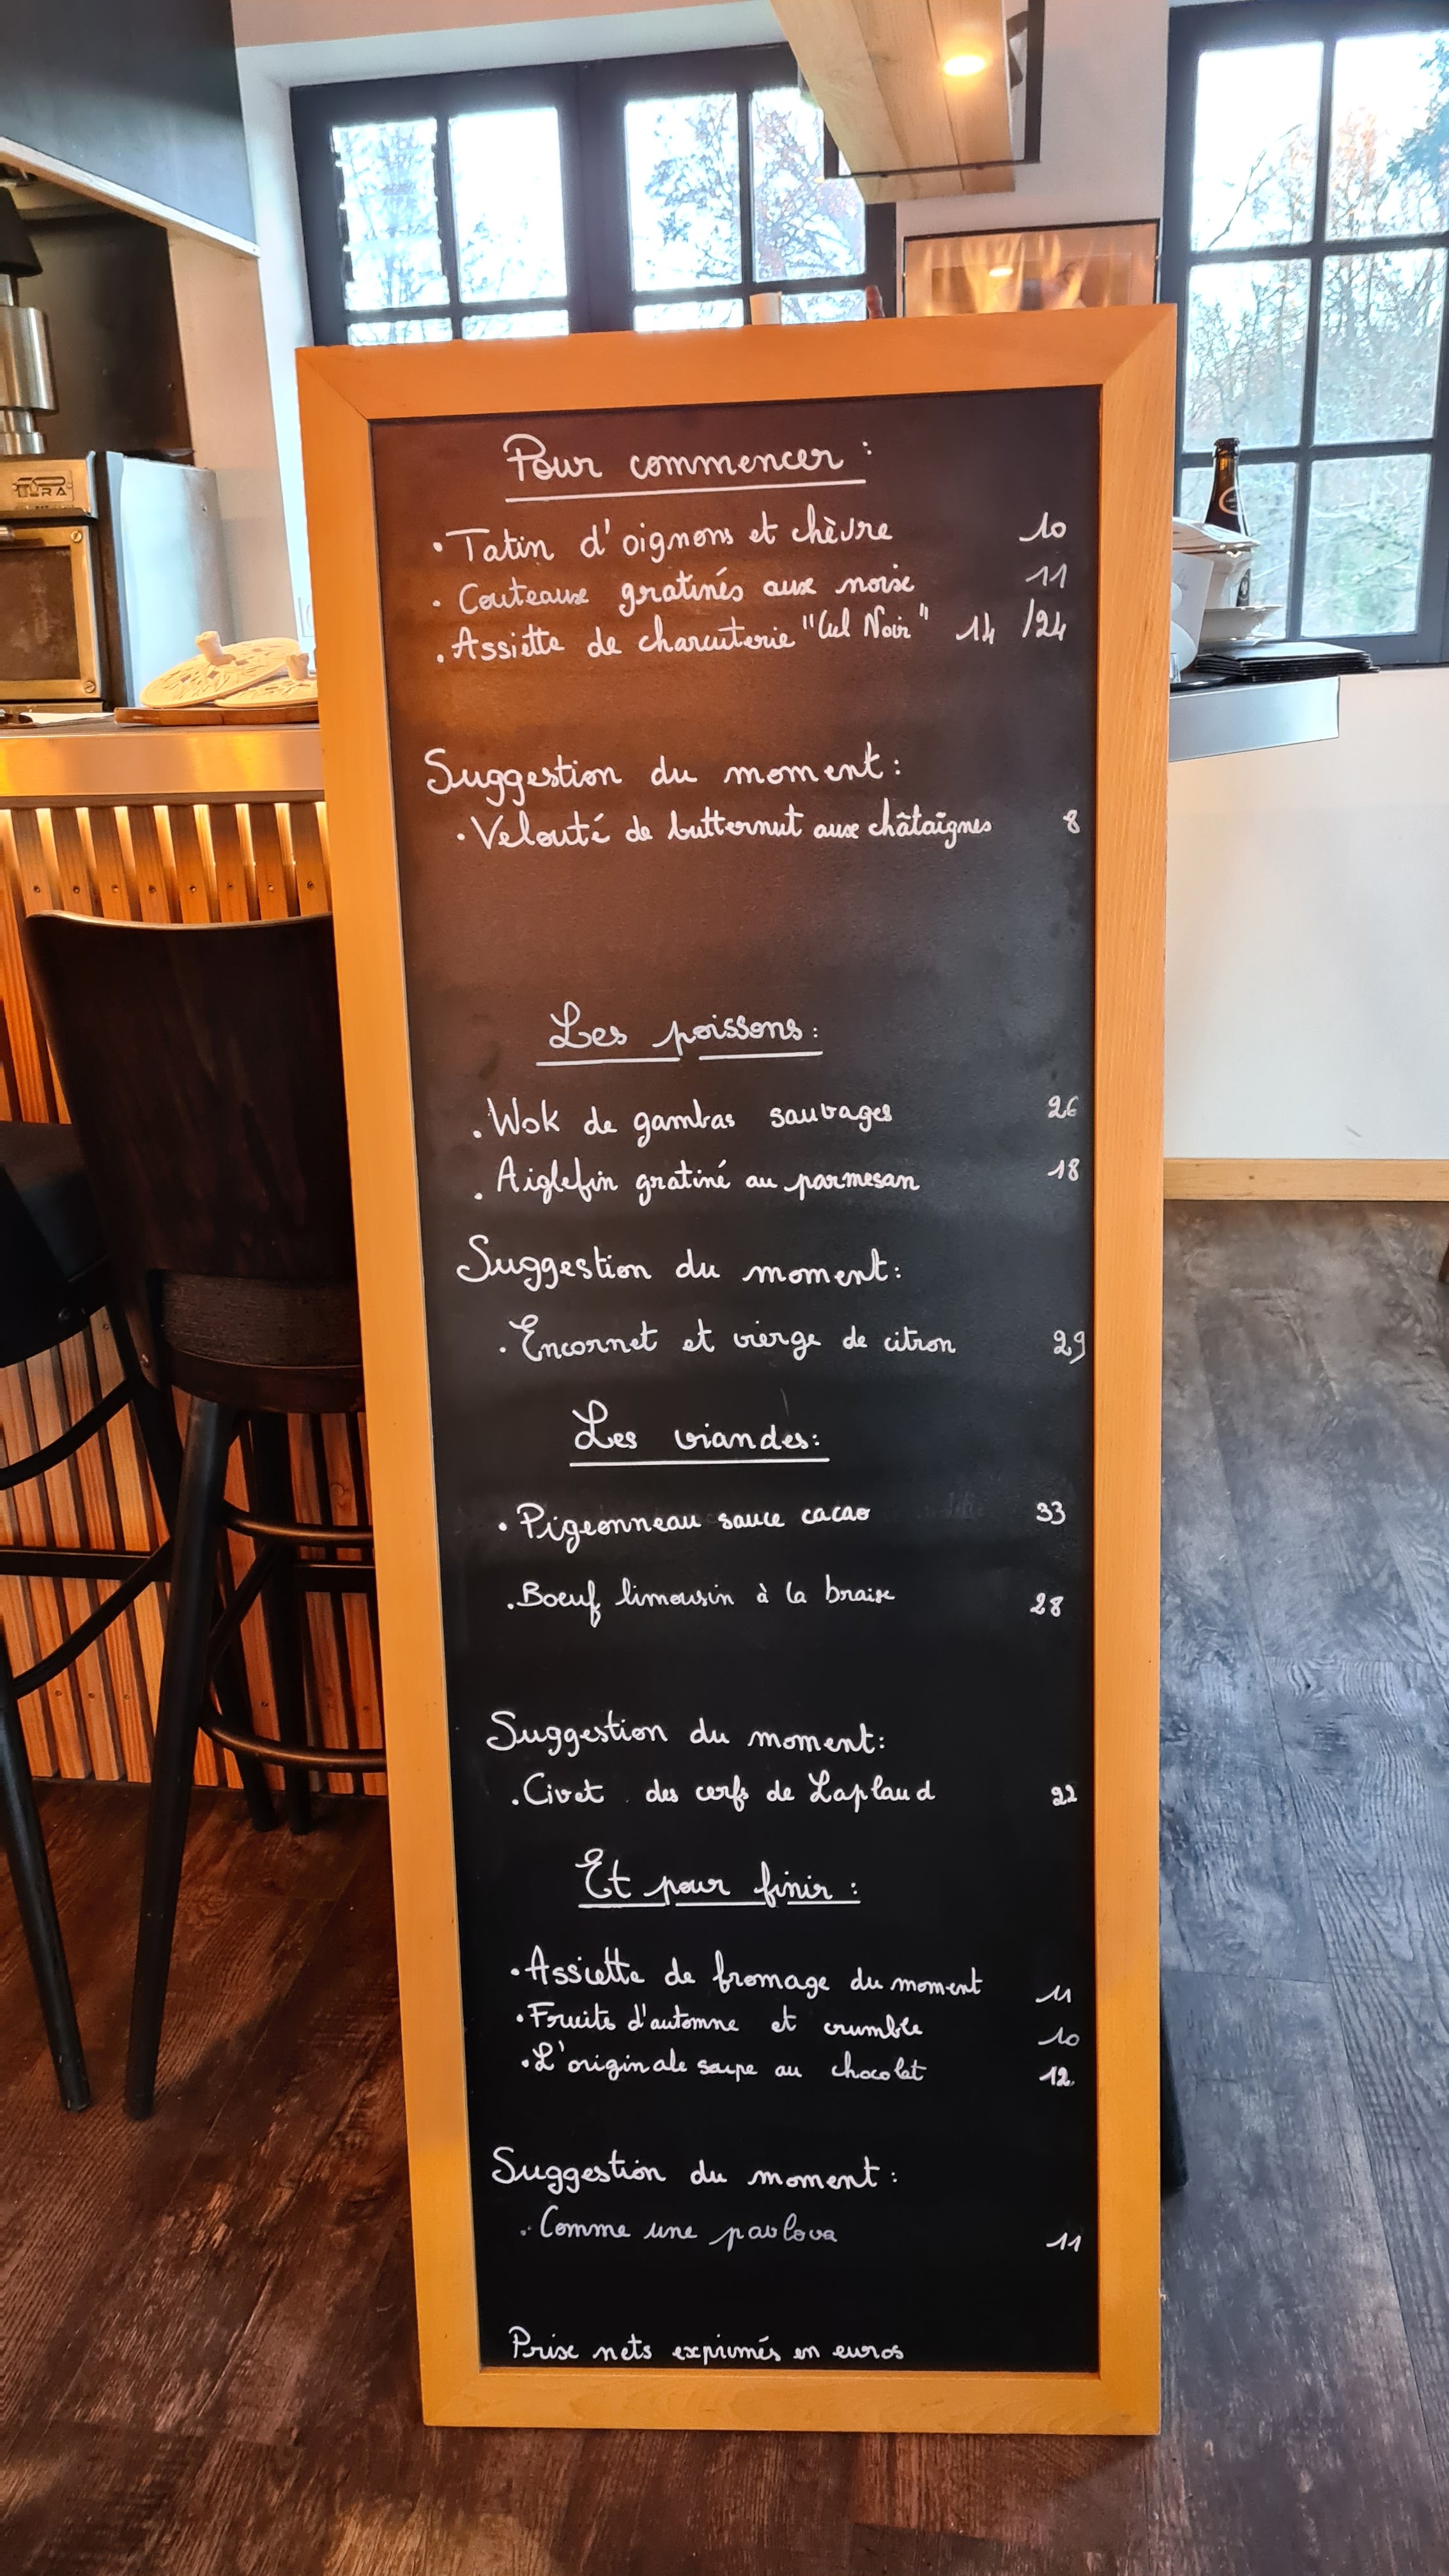 Pour commencer :
• Tatin d'oignons et chèvre 10
• Couteaux gratinés aux noix 11
• Assiette de charcuterie "Cul Noir" 14 /24
Suggestion du moment :
• Velouté de butternut aux châtaîgnes 8
Les poissons :
• Wok de gambas sauvages 26
• Aiglefin gratiné au parmesan 18
Suggestion du moment :
• Encornet et vierge de citron 29
Les viandes :
• Pigeonneau sauce cacao 33
• Boeuf limousin à la braise 28
Suggestion du moment :
• Civet des cerfs de Laplaud 22
Et pour finir :
• Assiette de fromage du moment 11
• Fruits d'automne et crumble 10
• L'originale soupe au chocolat 12
Suggestion du moment :
• Comme une pavlova 11
Prix nets exprimés en euros